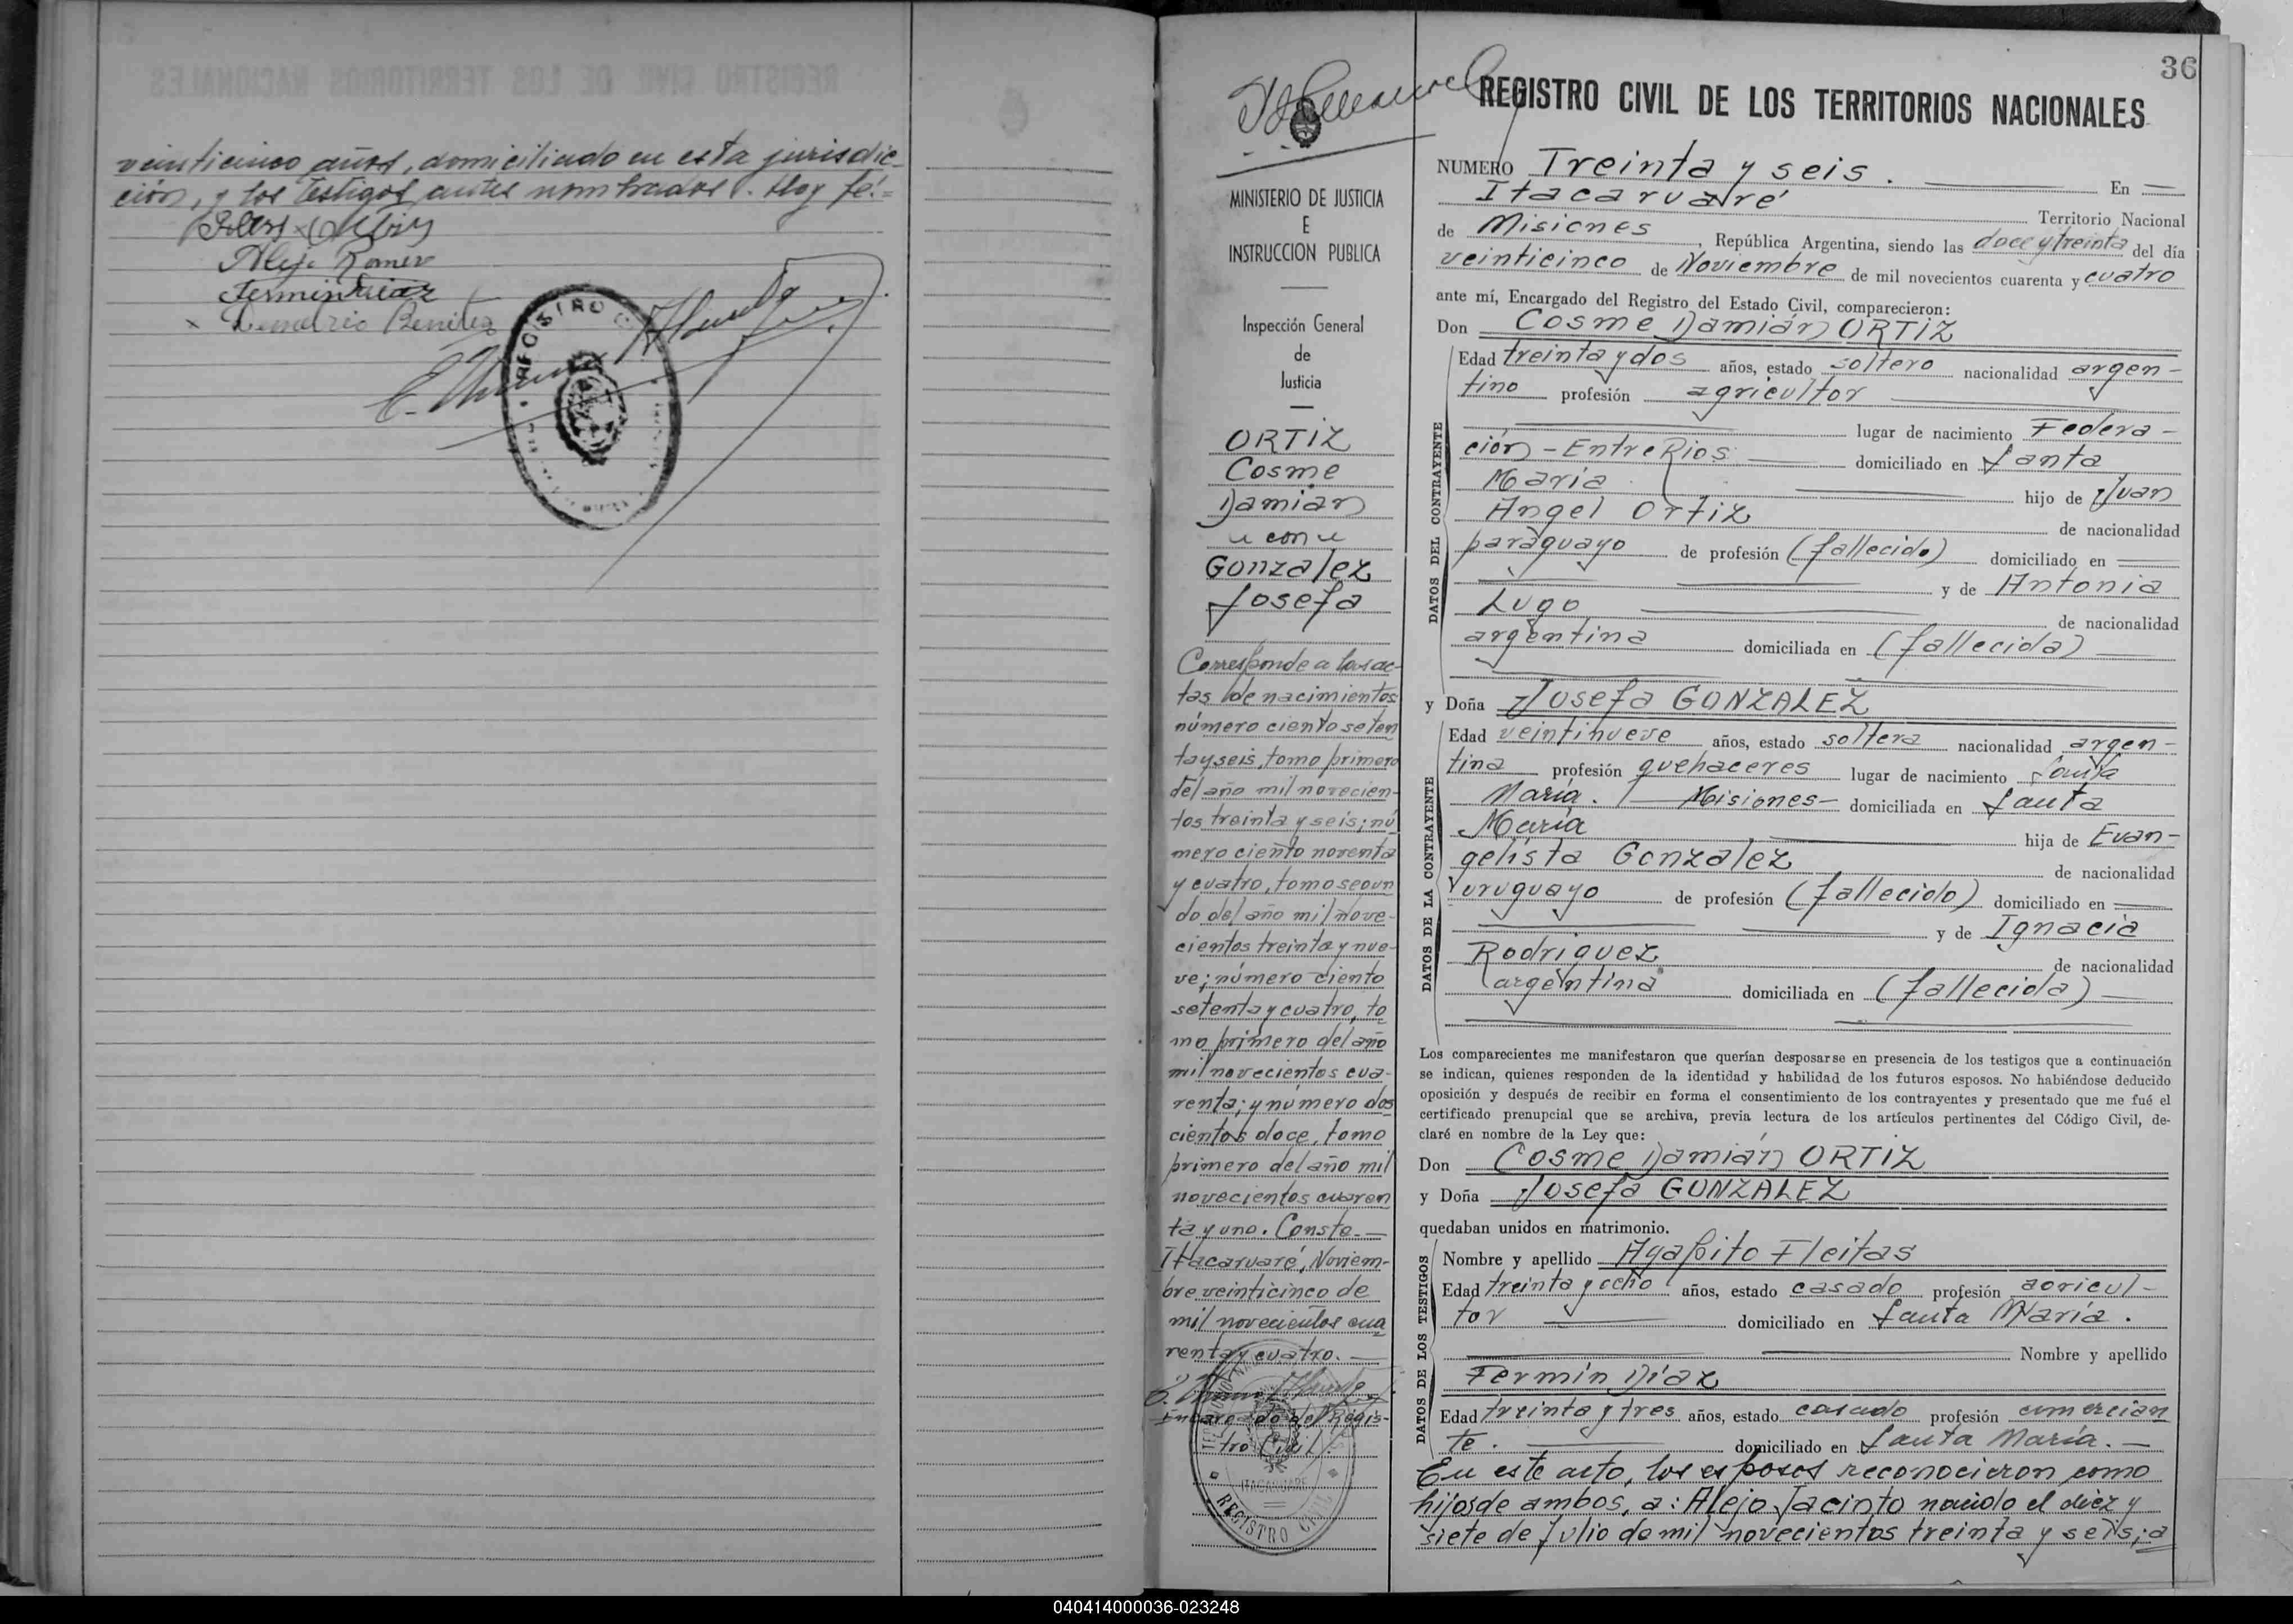 veinticinco años, domiciliado en esta jurisdic-
ción, y los testigos antes nombrados. Hoy fé.=
Alej. Romero
Fermin Diaz
x Demetrio Benitez
REGISTRO
36
REGISTRO CIVIL DE LOS TERRITORIOS NACIONALES
MINISTERIO DE JUSTICIA
E
INSTRUCCION PUBLICA
Inspección General
de
Justicia
ORTIZ
Cosme
Damián
con
Gonzalez
Josefa
Corresponde a las ac-
tas de nacimientos:
número ciento seten
ta y seis, tomo primero
del año mil novecien-
tos treinta y seis; nú
mero ciento noventa
y cuatro, tomo segun
do del año mil nove-
cientos treinta y nue-
ve; número ciento
setenta y cuatro, to
mo primero del año
mil novecientos cua-
renta; y número dos
cientos doce, tomo
primero del año mil
novecientos cuaren
ta y uno. Conste.—
Itacaruaré, Noviem-
bre veinticinco de
mil novecientos cua
renta y cuatro.—
Encargado del Regis-
tro Civil
ITACARUARE
REGISTRO CIVIL
NUMERO Treinta y seis. En
Itacaruaré Territorio Nacional
de Misiones, República Argentina, siendo las doce y treinta del día
veinticinco de Noviembre de mil novecientos cuarenta y cuatro
ante mí, Encargado del Registro del Estado Civil, comparecieron:
Don Cosme Damián ORTIZ
DATOS DEL CONTRAYENTE
Edad treinta y dos años, estado soltero nacionalidad argen-
tino profesión agricultor
lugar de nacimiento Federa-
ción - Entre Rios domiciliado en Santa
María hijo de Juan
Angel Ortiz de nacionalidad
paraguayo de profesión (fallecido) domiciliado en
y de Antonia
Lugo de nacionalidad
argentina domiciliada en (fallecida)
y Doña Josefa GONZALEZ
DATOS DE LA CONTRAYENTE
Edad veintinueve años, estado soltera nacionalidad argen-
tina profesión quehaceres lugar de nacimiento Santa
María. — Misiones — domiciliada en Santa
María hija de Evan-
gelista Gonzalez de nacionalidad
uruguayo de profesión (fallecido) domiciliado en
y de Ignacia
Rodriguez de nacionalidad
argentina domiciliada en (fallecida)
Los comparecientes me manifestaron que querían desposarse en presencia de los testigos que a continuación
se indican, quienes responden de la identidad y habilidad de los futuros esposos. No habiéndose deducido
oposición y después de recibir en forma el consentimiento de los contrayentes y presentado que me fué el
certificado prenupcial que se archiva, previa lectura de los artículos pertinentes del Código Civil, de-
claré en nombre de la Ley que:
Don Cosme Damián ORTIZ
y Doña Josefa GONZALEZ
quedaban unidos en matrimonio.
DATOS DE LOS TESTIGOS
Nombre y apellido Agapito Fleitas
Edad treinta y ocho años, estado casado profesión agricul-
tor domiciliado en Santa María.
Nombre y apellido
Fermín Díaz
Edad treinta y tres años, estado casado profesión comercian
te. domiciliado en Santa María.—
En este acto, los esposos reconocieron como
hijos de ambos, a: Alejo Jacinto nacido el diez y
siete de Julio de mil novecientos treinta y seis; a
040414000036-023248